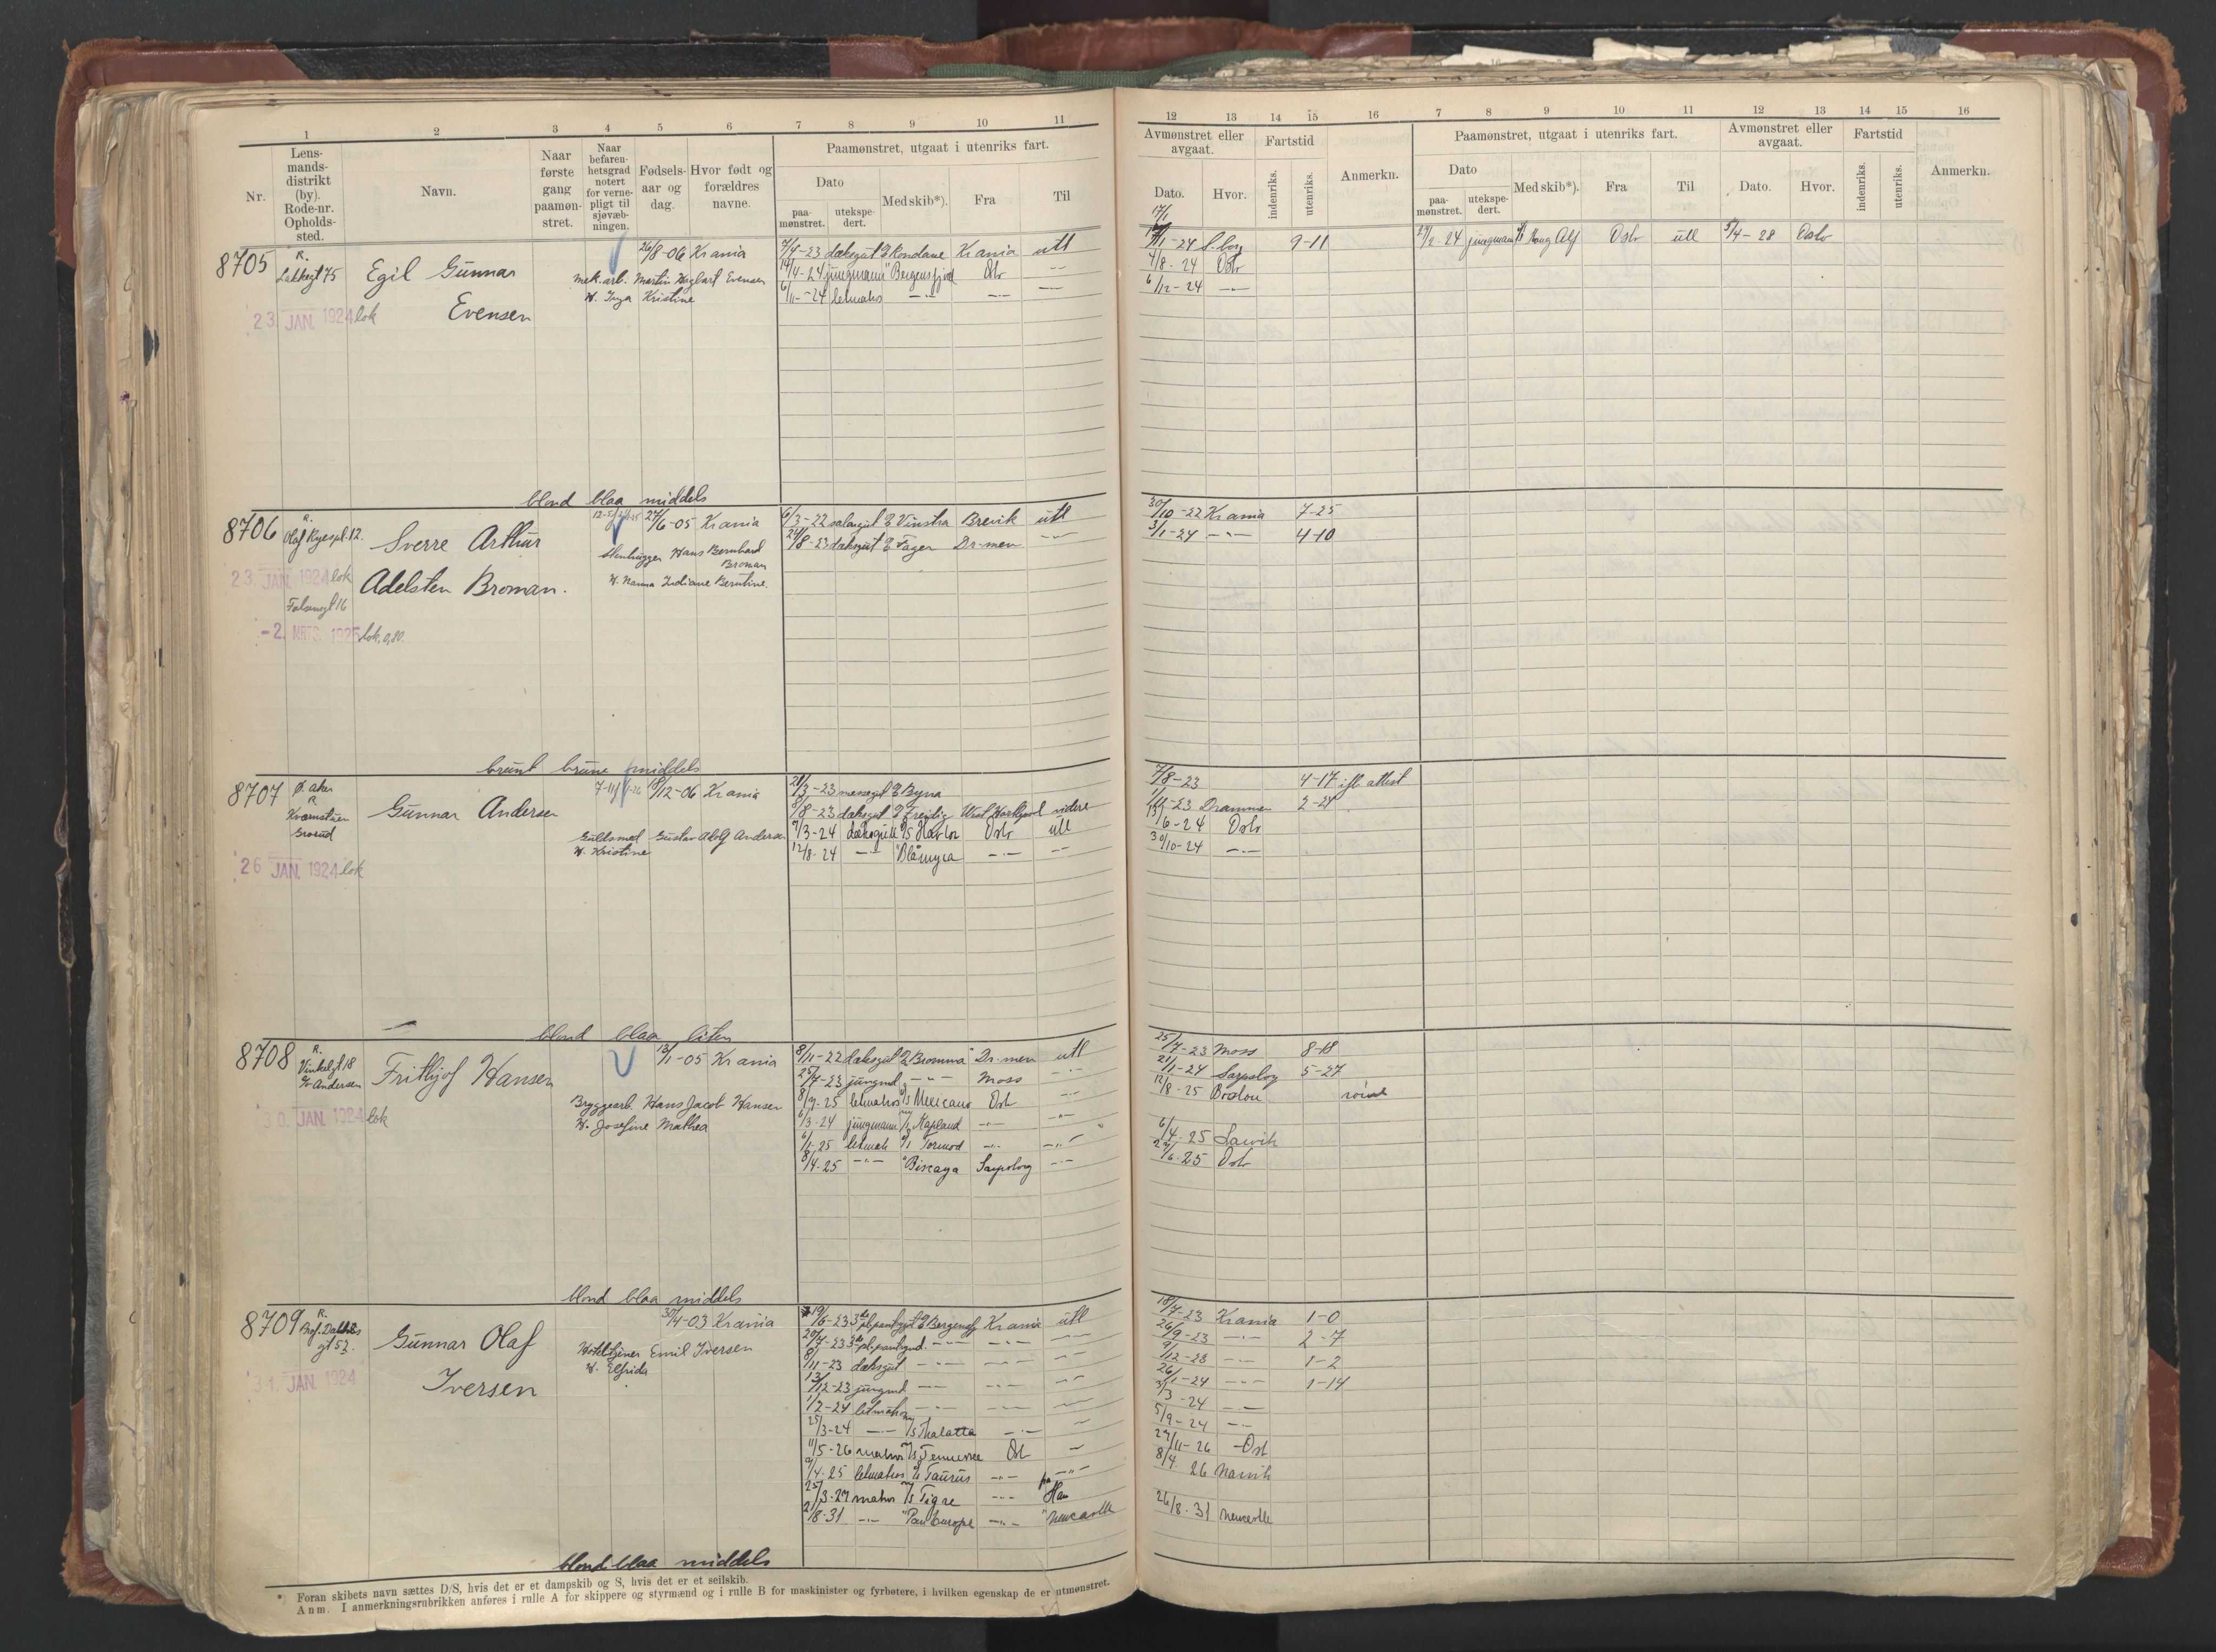 1 2 3 4 5 6 7 8 9 10 11
Nr.
Lens-
mands-
distrikt
(by).
Rode-nr.
Opholds-
sted.
Navn.
Naar
første
gang
paamøn-
stret.
Naar
befaren-
hetsgrad
notert
for verne-
pligt til
sjøvæb-
ningen.
Fødsels-
aar og
dag.
Hvor født og
forældres
navne.
Paamønstret, utgaat i utenriks fart.
Dato
paa-
mønstret.
utekspe-
dert.
Med skib*).
Fra
Til
8705
R.
Egil Gunnar
Evensen
26/8-06 Krania
mek.arb. Martin Hagbart Evensen
H. Inga Kristine
23 JAN. 1924 lok
7/4-23 dæksgut Rondane Krania utl
14/4-24 jungmann " Bergensfjord Oslo —"—
6/11-24 letmatros —"— —"— —"—
blond blaa middels
8706
R.
Olaf Ryespl. 12.
Sverre Arthur
Adelsten Broman.
27/6-05 Krania
Stenhugger Hans Bernhard
Broman
H. Nanna Indiane Berntine.
23 JAN. 1924 lok
-2. MRTS. 1925 lok. 0,80.
6/3-22 salongut Vinstra Brevik utl
24/8-23 dæksgut Fager Dr-men —"—
brunt brune middels
8707
Ø. Aker
R
Grorud
Gunnar Andersen
18/12-06 Krania
Gullsmed Gustav Adolf Andersen
H. Kristine
26 JAN. 1924 lok
21/3-23 messegut Byna
8/8-23 dæksgut Freidig West Hartlpool videre
7/3-24 dæksgutt D/S Havlor Oslo utl
12/8-24 —"— " Blåmyra —"— —"—
blond blaa liten
8708
R.
Vinkelgt 18
Andersen
Frithjof Hansen
13/1-05 Krania
Bryggearb. Hans Jacob Hansen
H. Josefine Mathea
30. JAN. 1924 lok
8/11-22 dæksgut Bromma Dr-men utl
25/7-23 jungmd —"— Moss —"—
8/7-25 letmatros Mexicano Oslo —"—
6/3-24 jungmann Kapland —"— —"—
6/1-25 letmatr Tormod —"— —"—
8/4-25 —"— " Biscaya Sarpsborg —"—
blond blaa middels
8709
R.
Prof. Dahls
gt 52.
Gunnar Olaf
Iversen
30/4-03 Krania
Hotelltjener Emil Iversen
H. Elfrida
31. JAN. 1924
19/6-23 Bergensfj Krania utl
20/7-23 —"— —"— —"—
8/11-23 dæksgut —"— —"— —"—
13/12-23 jungmd —"— —"— —"—
1/2-24 letmatros —"— —"— —"—
25/3-24 —"— M/S Thalatta —"— —"—
11/5-26 matros M/S Tennessee Oslo —"—
9/4-25 letmatros Taurus —"— —"—
25/3-27 matros M/S Tigre —"— Hav
21/8-31 —"— " Pan Europe —"— " Newcastle
blond blaa middels
* Foran skibets navn sættes D/S, hvis det er et dampskib og S, hvis det er et seilskib.
Anm. I anmerkningsrubrikken anføres i rulle A for skippere og styrmænd og i rulle B for maskinister og fyrbøtere, i hvilken egenskap de er utmønstret.
12 13 14 15 16 7 8 9 10 11 12 13 14 15 16
Avmønstret eller
avgaat.
Dato.
Hvor.
Fartstid
indenriks.
utenriks.
Anmerkn.
Paamønstret, utgaat i utenriks fart.
Dato
paa-
mønstret.
utekspe-
dert.
Med skib*).
Fra
Til
Avmønstret eller
avgaat.
Dato.
Hvor.
Fartstid
indenriks.
utenriks.
Anmerkn.
17/1
17/1-24 S.borg 9-11
4/8-24 Oslo
6/12-24 —"—
29/2 24 jungmann Haug Alf Oslo utl 5/4-28 Oslo
30/10-22 Krania 7-25
3/1-24 —"— 4-10
7/8-23 4-17 ifl attest
1/11-23 Drammen 2-24
13/6-24 Oslo
30/10-24 —"—
25/7-23 Moss 8-18
21/1-24 Sarpsborg 5-27
12/8-25 Boston rømt
6/4-25 Larvik
27/6-25 Oslo
18/7-23 Krania 1-0
26/9-23 —"— 2-7
9/12-23 —"— 1-2
26/1-24 —"— 1-14
3/3-24 —"—
5/9-24 —"—
27/11-26 Oslo
8/4 26 Narvik
26/8-31 Newcastle